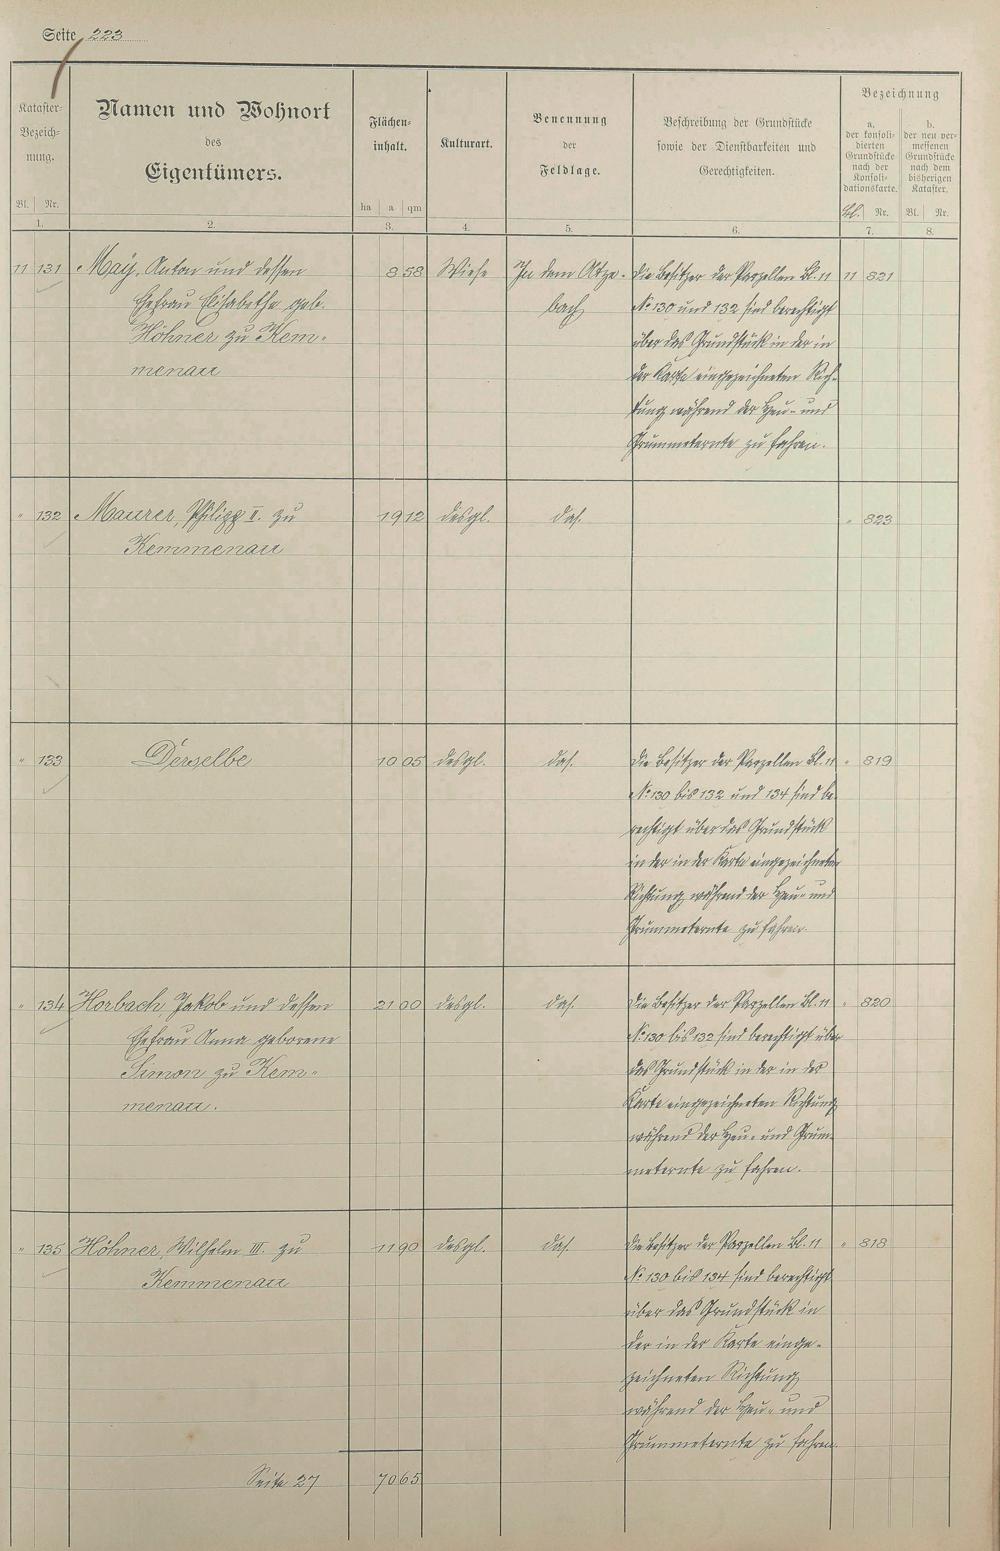 Seite 223
Kataster-
Bezeich-
nung.
Bl. Nr.
1.
Namen und Wohnort
des
Eigentümers.
2.
Flächen-
inhalt.
ha a qm
3.
Kulturart.
4.
Benennung
der
Feldlage.
5.
Beschreibung der Grundstücke
sowie der Dienstbarkeiten und
Gerechtigkeiten.
6.
Bezeichnung
a.
der konsoli-
dierten
Grundstücke
nach der
Konsoli-
dationskarte.
Bl. Nr.
7.
b.
der neu ver-
messenen
Grundstücke
nach dem
bisherigen
Kataster.
Bl. Nr.
8.
11 131 May, Anton und dessen 8 58 Wiese In dem Atze- die Besitzer der Parzellen Bl. 11 11 821
Ehefrau Elisabetha geb. bach No 130 und 132 sind berechtigt
Höhner zu Kem- über das Grundstück in der in
menau der Karte eingezeichneten Rich-
tung während der Heu- und
Grummeternte zu fahren.
" 132 Maurer, Philipp II. zu 19 12 desgl. das. " 823
Kemmenau
" 133 Derselbe 10 05 desgl. das. die Besitzer der Parzellen Bl. 11 " 819
No 130 bis 132 und 134 sind be-
rechtigt über das Grundstück
in der in der Karte eingezeichneten
Richtung während der Heu- und
Grummeternte zu fahren.
" 134 Horbach, Jakob und dessen 21 00 desgl. das. die Besitzer der Parzellen Bl. 11 " 820
Ehefrau Anna geborene No 130 bis 132 sind berechtigt über
Simon zu Kem- das Grundstück in der in der
menau. Karte eingezeichneten Richtung
während der Heu- und Grum-
meternte zu fahren.
" 135 Höhner, Wilhelm III. zu 11 90 desgl. das. die Besitzer der Parzellen Bl. 11 " 818
Kemmenau No 130 bis 134 sind berechtigt
über das Grundstück in
der in der Karte einge-
zeichneten Richtung
während der Heu- und
Grummeternte zu fahren.
Seite 27 70 65